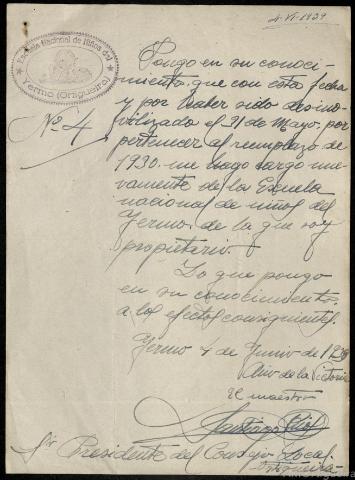 4-VI-1939
Escuela Nacional de Niños del
Yermo (Ortigueira)
Nº 4
Pongo en su conoci-
miento, que con esta fecha
y por haber sido desmo-
vilizado el 31 de Mayo, por
pertenecer al reemplazo de
1930, me hago cargo nue-
vamente de la Escuela
nacional de niños del
Yermo, de la que soy
propietario.
Lo que pongo
en su conocimiento,
a los efectos consiguientes.
Yermo 4 de Junio de 1939
Año de la Victoria
El maestro
Santiago
Sr. Presidente del Consejo Local.
Ortigueira